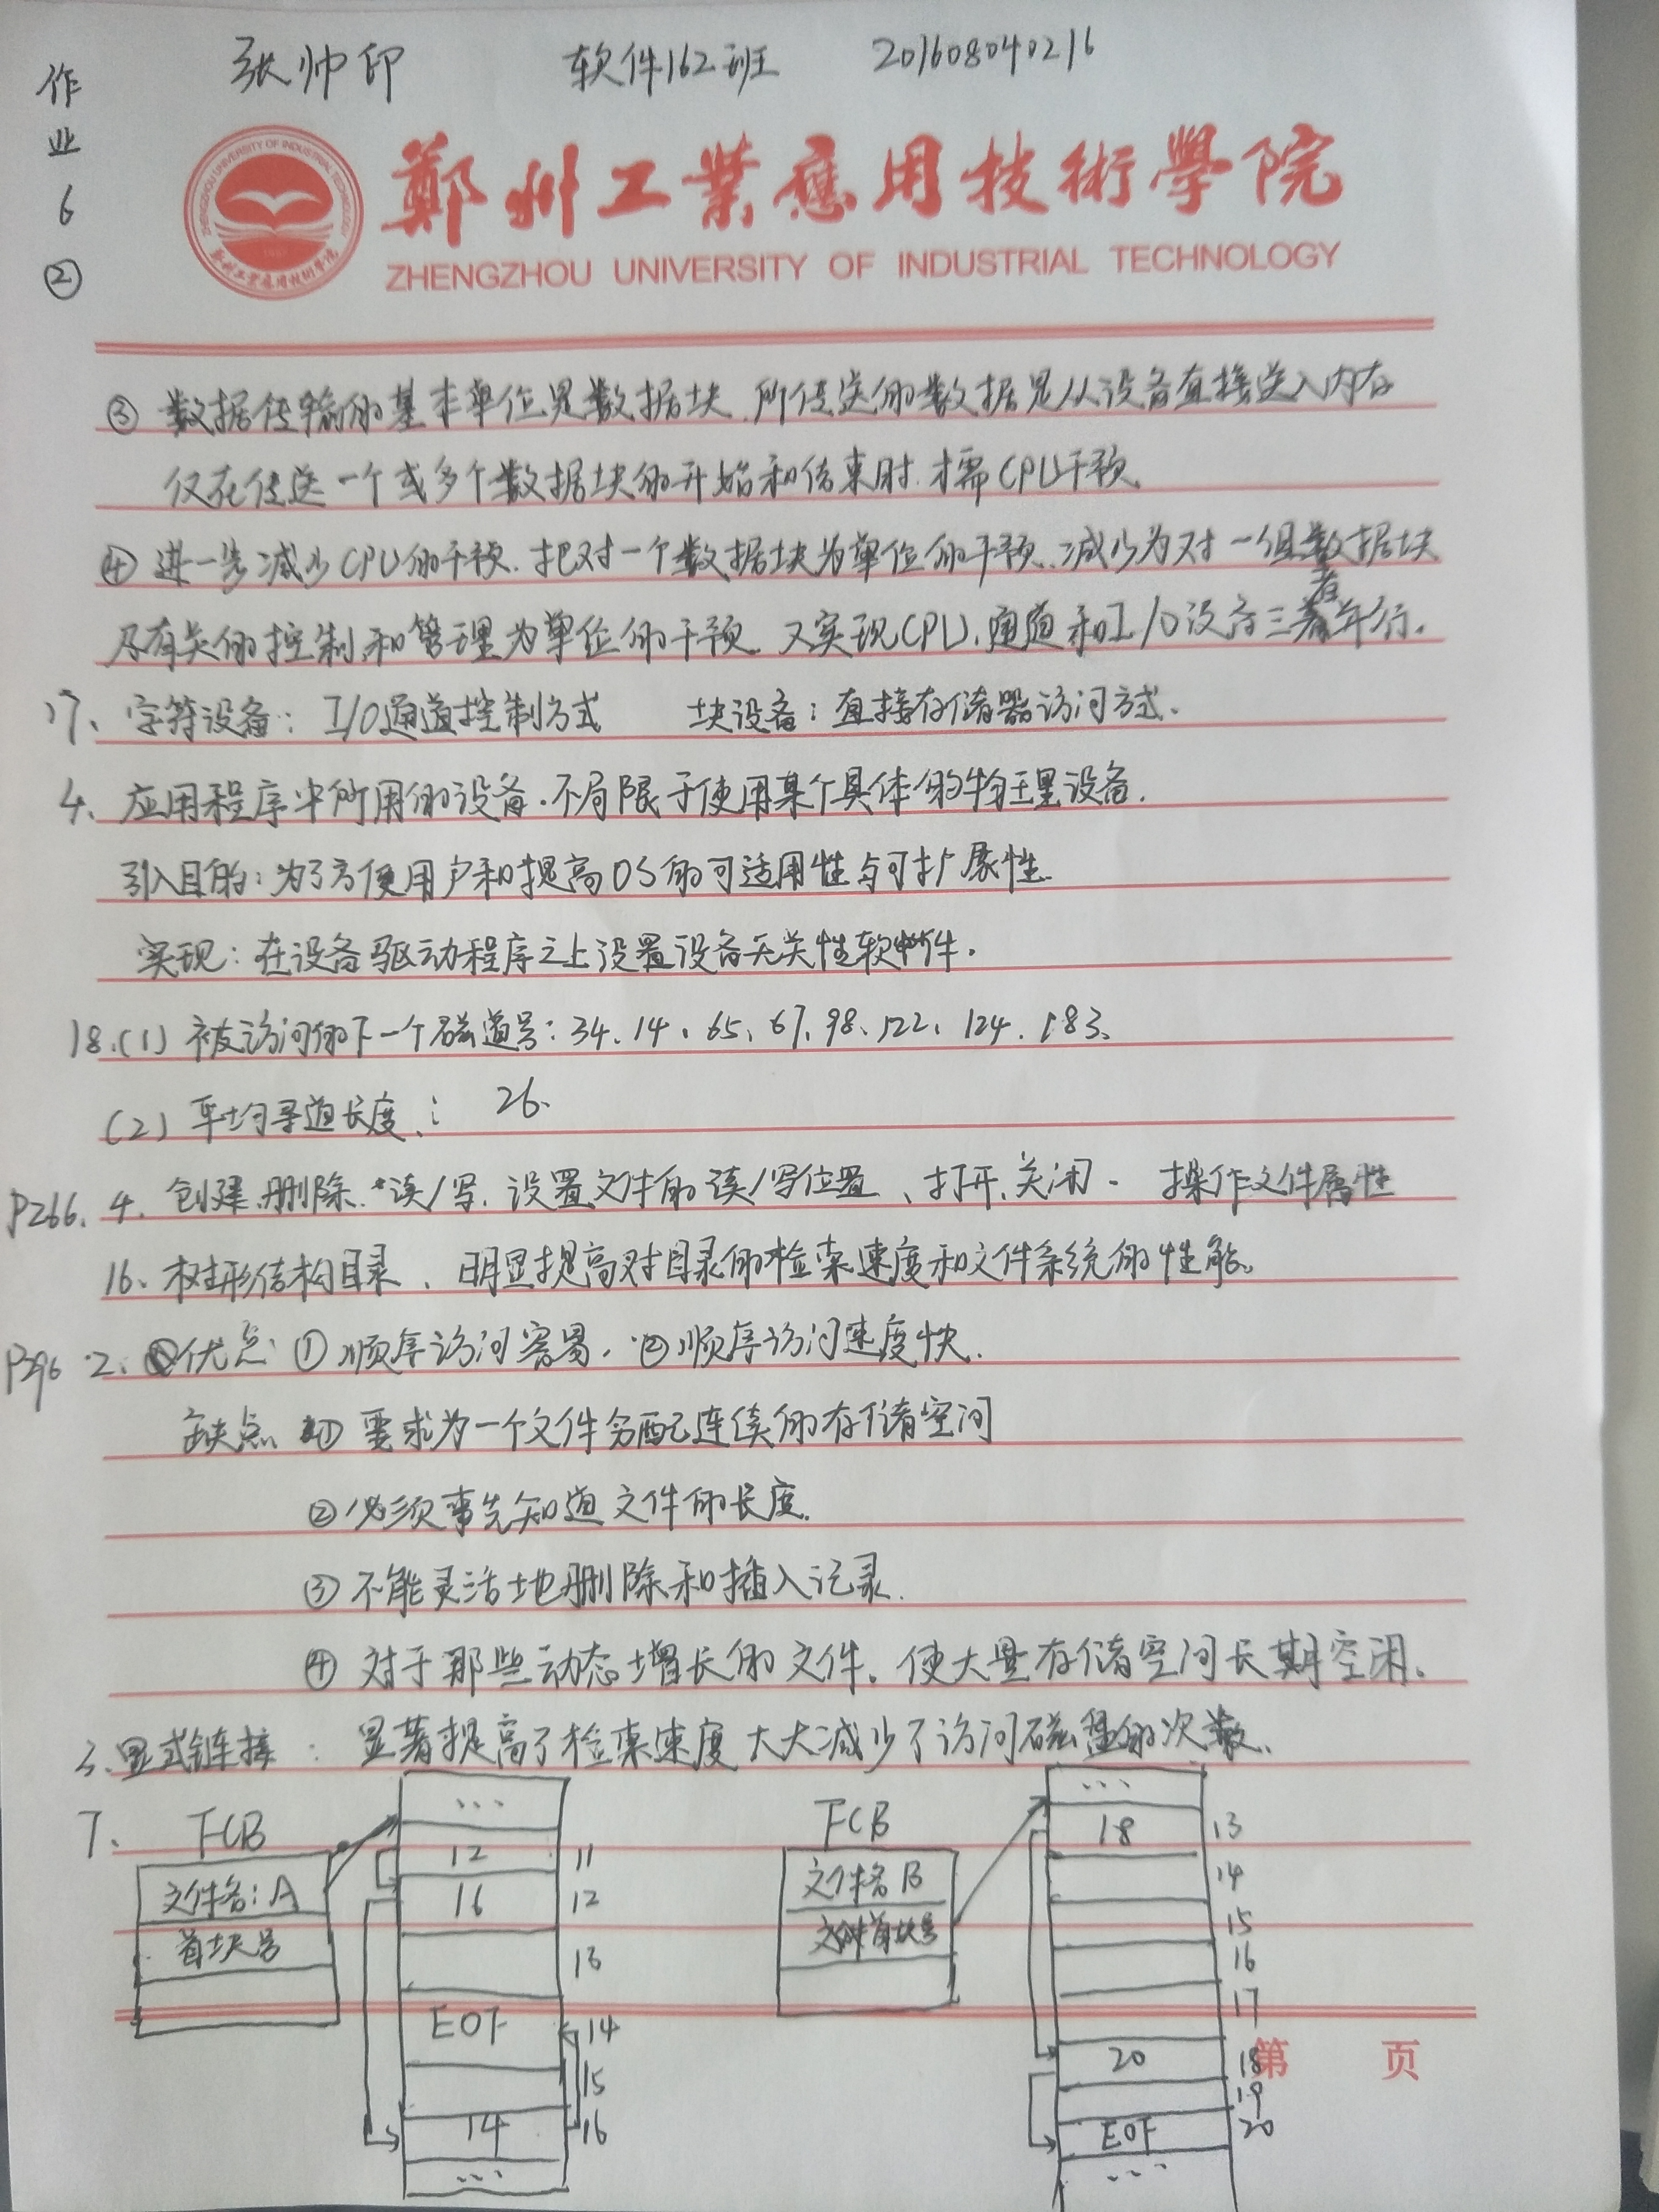 张帅印 软件162班 201608040216
作业6②
鄭州工業應用技術學院
ZHENGZHOU UNIVERSITY OF INDUSTRIAL TECHNOLOGY
③ 数据传输的基本单位是数据块,所传送的数据是从设备直接送入内存
仅在传送一个或多个数据块的开始和结束时,才需CPU干预。
④ 进一步减少CPU的干预.把对一个数据块为单位的干预、减少为对一组数据块
及有关的控制和管理为单位的干预。又实现CPU、通道和I/O设备三者并行.
17、字符设备:I/O通道控制方式 块设备:直接存储器访问方式.
4、应用程序中所用的设备.不局限于使用某个具体的物理设备.
引入目的:为了方便用户和提高OS的可适用性与可扩展性.
实现:在设备驱动程序之上设置设备无关性软件.
18.(1)被访问的下一个磁道号:34、14、65、67、98、122、124、183、
(2)平均寻道长度: 26.
P266. 4. 创建、删除、读/写、设置文件的读/写位置、打开、关闭. 操作文件属性
16、树形结构目录、明显提高对目录的检索速度和文件系统的性能。
P296 2. 优点 ① 顺序访问容易. ②顺序访问速度快.
缺点 ① 要求为一个文件分配连续的存储空间
②必须事先知道文件的长度.
③ 不能灵活地删除和插入记录.
④ 对于那些动态增长的文件。使大量存储空间长期空闲。
3.显式链接:显著提高了检索速度大大减少了访问磁盘的次数.
7. FCB
文件名:A
首块号
...
12 11
16 12
13
EOF 14
15
14 16
...
FCB
文件名B
首块号
...
18 13
14
15
16
17
20 18
19
EOF 20
...
第 页